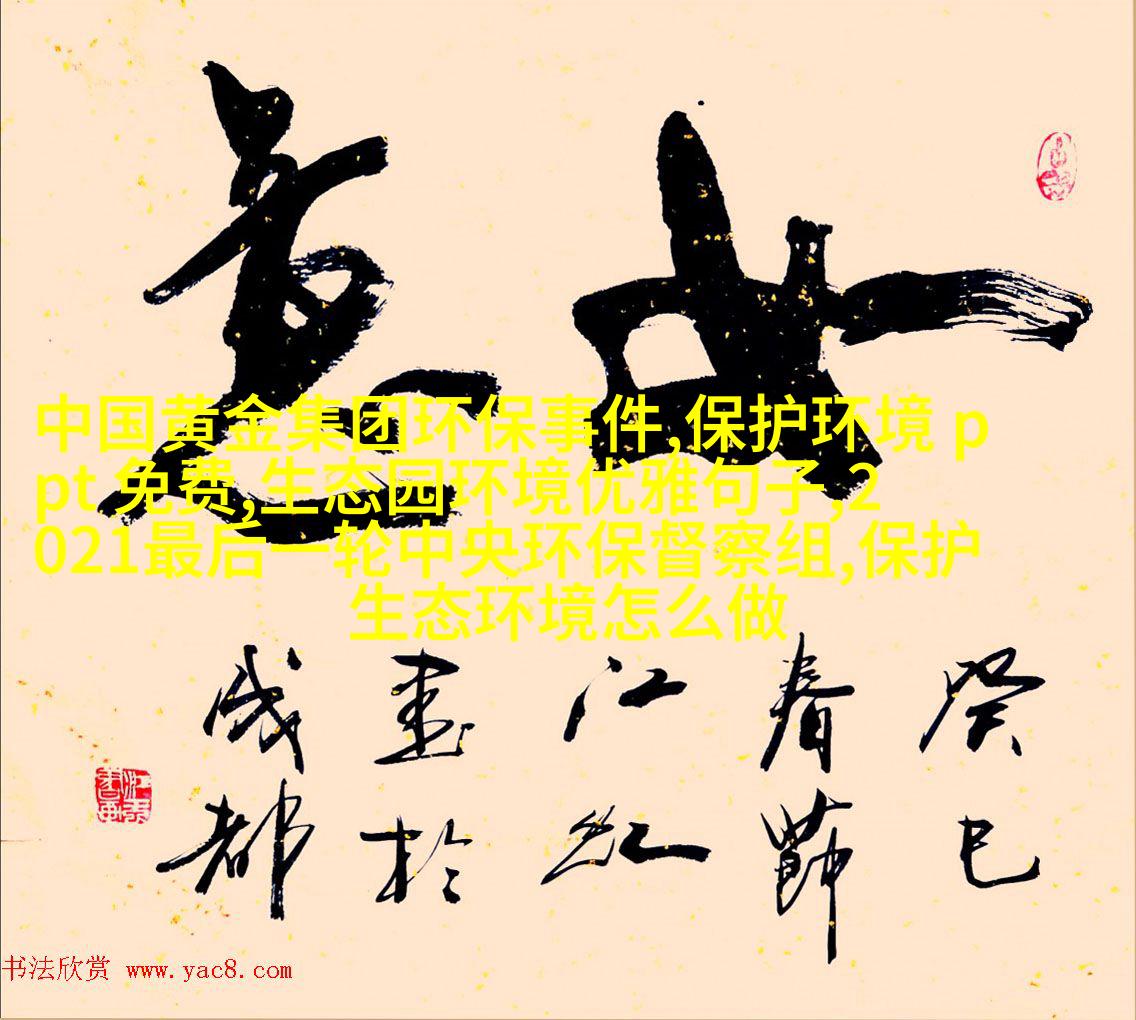 如意
中国黄金集团环保事件,保护环境 p
pt 免费,生态园环境优雅句子,2
021最后一轮中央环保督察组,保护
生态环境怎么做
癸巳
春節
江红
書於
成都
书法欣赏 www.yac8.com